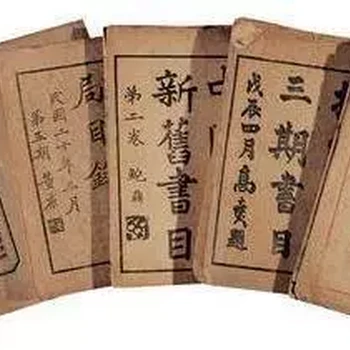 三期書目
戊辰四月高燮題
新舊書目
第二卷 鮑鼎
局目錄
民國二十年三月
第五期 黃